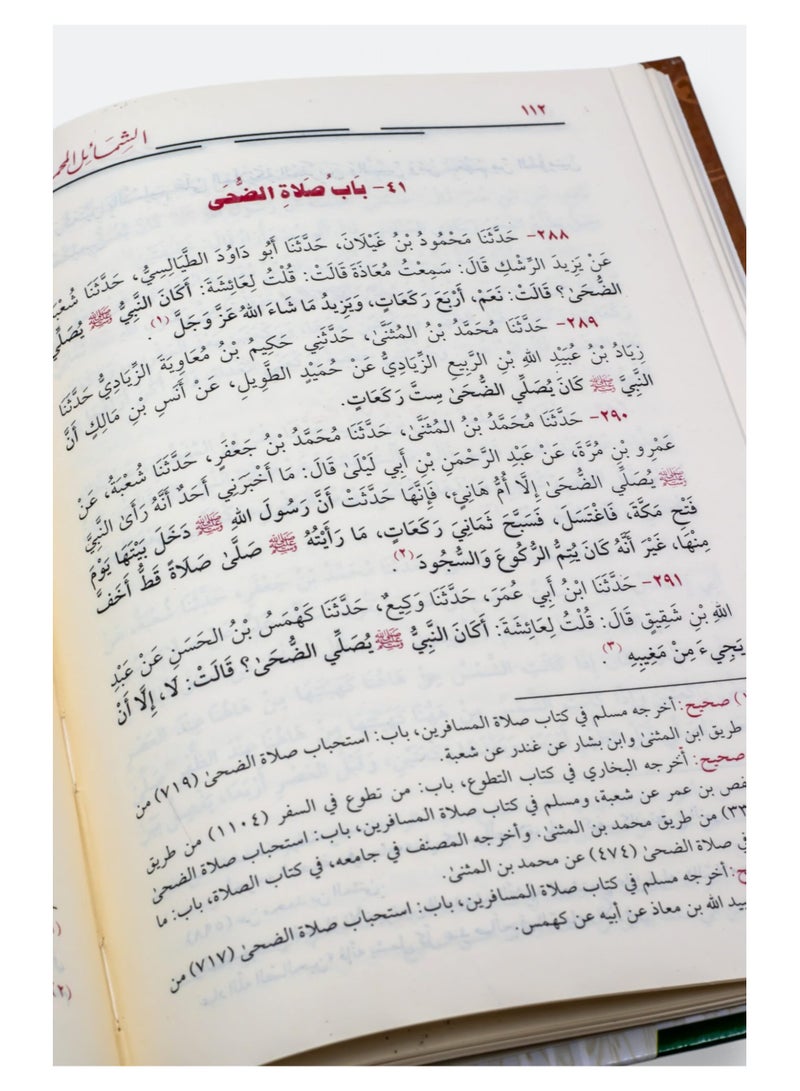 ١١٢
الشمائل المحم
٤١- بَابُ صَلَاةِ الضُّحَى
٢٨٨- حَدَّثَنَا مَحْمُودُ بْنُ غَيْلَانَ، حَدَّثَنَا أَبُو دَاوُدَ الطَّيَالِسِيُّ، حَدَّثَنَا شُعْبَةُ
عَنْ يَزِيدَ الرِّشْكِ قَالَ: سَمِعْتُ مُعَاذَةَ قَالَتْ: قُلْتُ لِعَائِشَةَ: أَكَانَ النَّبِيُّ ﷺ يُصَلِّي
الضُّحَىٰ؟ قَالَتْ: نَعَمْ، أَرْبَعَ رَكَعَاتٍ، وَيَزِيدُ مَا شَاءَ اللهُ عَزَّ وَجَلَّ (١).
٢٨٩- حَدَّثَنَا مُحَمَّدُ بْنُ المُثَنَّىٰ، حَدَّثَنِي حَكِيمُ بْنُ مُعَاوِيَةَ الزِّيَادِيُّ حَدَّثَنَا
زِيَادُ بْنُ عُبَيْدِ اللهِ بْنِ الرَّبِيعِ الزِّيَادِيُّ عَنْ حُمَيْدٍ الطَّوِيلِ، عَنْ أَنَسِ بْنِ مَالِكٍ أَنَّ
النَّبِيَّ ﷺ كَانَ يُصَلِّي الضُّحَىٰ سِتَّ رَكَعَاتٍ.
٢٩٠- حَدَّثَنَا مُحَمَّدُ بْنُ المُثَنَّىٰ، حَدَّثَنَا مُحَمَّدُ بْنُ جَعْفَرٍ، حَدَّثَنَا شُعْبَةُ، عَنْ
عَمْرِو بْنِ مُرَّةَ، عَنْ عَبْدِ الرَّحْمَنِ بْنِ أَبِي لَيْلَىٰ قَالَ: مَا أَخْبَرَنِي أَحَدٌ أَنَّهُ رَأَىٰ النَّبِيَّ
ﷺ يُصَلِّي الضُّحَىٰ إِلَّا أُمُّ هَانِئٍ، فَإِنَّهَا حَدَّثَتْ أَنَّ رَسُولَ اللهِ ﷺ دَخَلَ بَيْتَهَا يَوْمَ
فَتْحِ مَكَّةَ، فَاغْتَسَلَ، فَسَبَّحَ ثَمَانِيَ رَكَعَاتٍ، مَا رَأَيْتُهُ ﷺ صَلَّىٰ صَلَاةً قَطُّ أَخَفَّ
مِنْهَا، غَيْرَ أَنَّهُ كَانَ يُتِمُّ الرُّكُوعَ وَالسُّجُودَ (٢).
٢٩١- حَدَّثَنَا ابْنُ أَبِي عُمَرَ، حَدَّثَنَا وَكِيعٌ، حَدَّثَنَا كَهْمَسُ بْنُ الحَسَنِ عَنْ عَبْدِ
اللهِ بْنِ شَقِيقٍ قَالَ: قُلْتُ لِعَائِشَةَ: أَكَانَ النَّبِيُّ ﷺ يُصَلِّي الضُّحَىٰ؟ قَالَتْ: لَا، إِلَّا أَنْ
يَجِيءَ مِنْ مَغِيبِهِ (٣).
) صحيح: أخرجه مسلم في كتاب صلاة المسافرين، باب: استحباب صلاة الضحىٰ (٧١٩) من
طريق ابن المثنىٰ وابن بشار عن غندر عن شعبة.
صحيح: أخرجه البخاري في كتاب التطوع، باب: من تطوع في السفر (١١٠٤) من طريق
فص بن عمر عن شعبة، ومسلم في كتاب صلاة المسافرين، باب: استحباب صلاة الضحىٰ
٣٣) من طريق محمد بن المثنىٰ. وأخرجه المصنف في جامعه، في كتاب الصلاة، باب: ما
في صلاة الضحىٰ (٤٧٤) عن محمد بن المثنىٰ.
ح: أخرجه مسلم في كتاب صلاة المسافرين، باب: استحباب صلاة الضحىٰ (٧١٧) من
بيد الله بن معاذ عن أبيه عن كهمس.